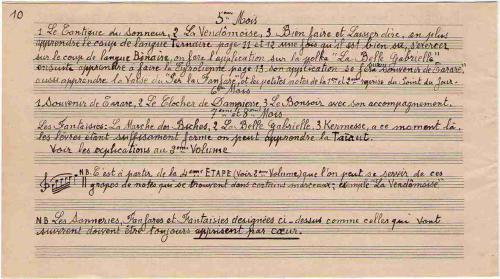 10
5ème Mois
1 Le Cantique du Sonneur, 2 La Vendômoise, 3 Bien faire et Laisser dire, en plus
apprendre le coup de langue Ternaire page 11 et 12 une fois qu'il est bien su, s'exercer
sur le coup de langue Binaire, en faire l'application sur la polka "La Belle Gabrielle"
ensuite apprendre a faire le page 13 son application se f. sur "Souvenir de Tarare"
aussi apprendre la Valse du "Per La Fanfare" et les petites notes de la 1ère et 2ème reprise du Point du Jour.
6ème Mois
1 Souvenir de Tarare, 2 Le Clocher de Dampierre, 3 Le Bonsoir avec son accompagnement.
7ème et 8ème Mois
Les Fantaisies: La Marche des Bichos, 2 La Belle Gabrielle, 3 Kermesse, a ce moment là,
les lèvres étant suffisament ferme on peut apprendre la Taïaut.
Voir les explications au 3ème Volume
N.B. C'est à partir de la 4ème ETAPE (Voir 2ème Volume) que l'on peut se servir de ces
gropos de notes qui se trouvent dans certains morceaux; exemple "La Vendômoise"
N.B. Les Sonneries, Fanfares et Fantaisies designées ci-dessus comme celles qui vont
suivrent doivent être toujours apprisent par cœur.